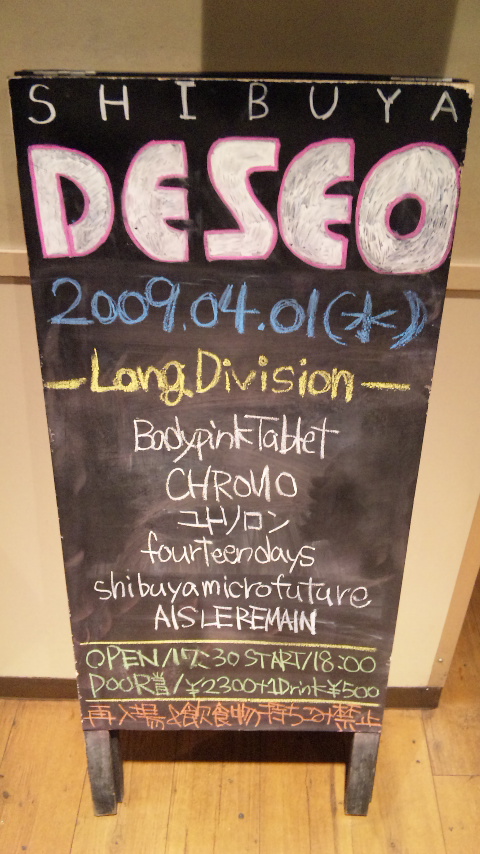 SHIBUYA
DESEO
2009.04.01(水)
-Long Division-
BodypinkTablet
CHROMO
ユトリロン
fourteendays
shibuyamicrofuture
AISLEREMAIN
OPEN/17:30 START/18:00
DOOR賞/¥2300+1Drink¥500
再入場&飲食物持ちこみ禁止